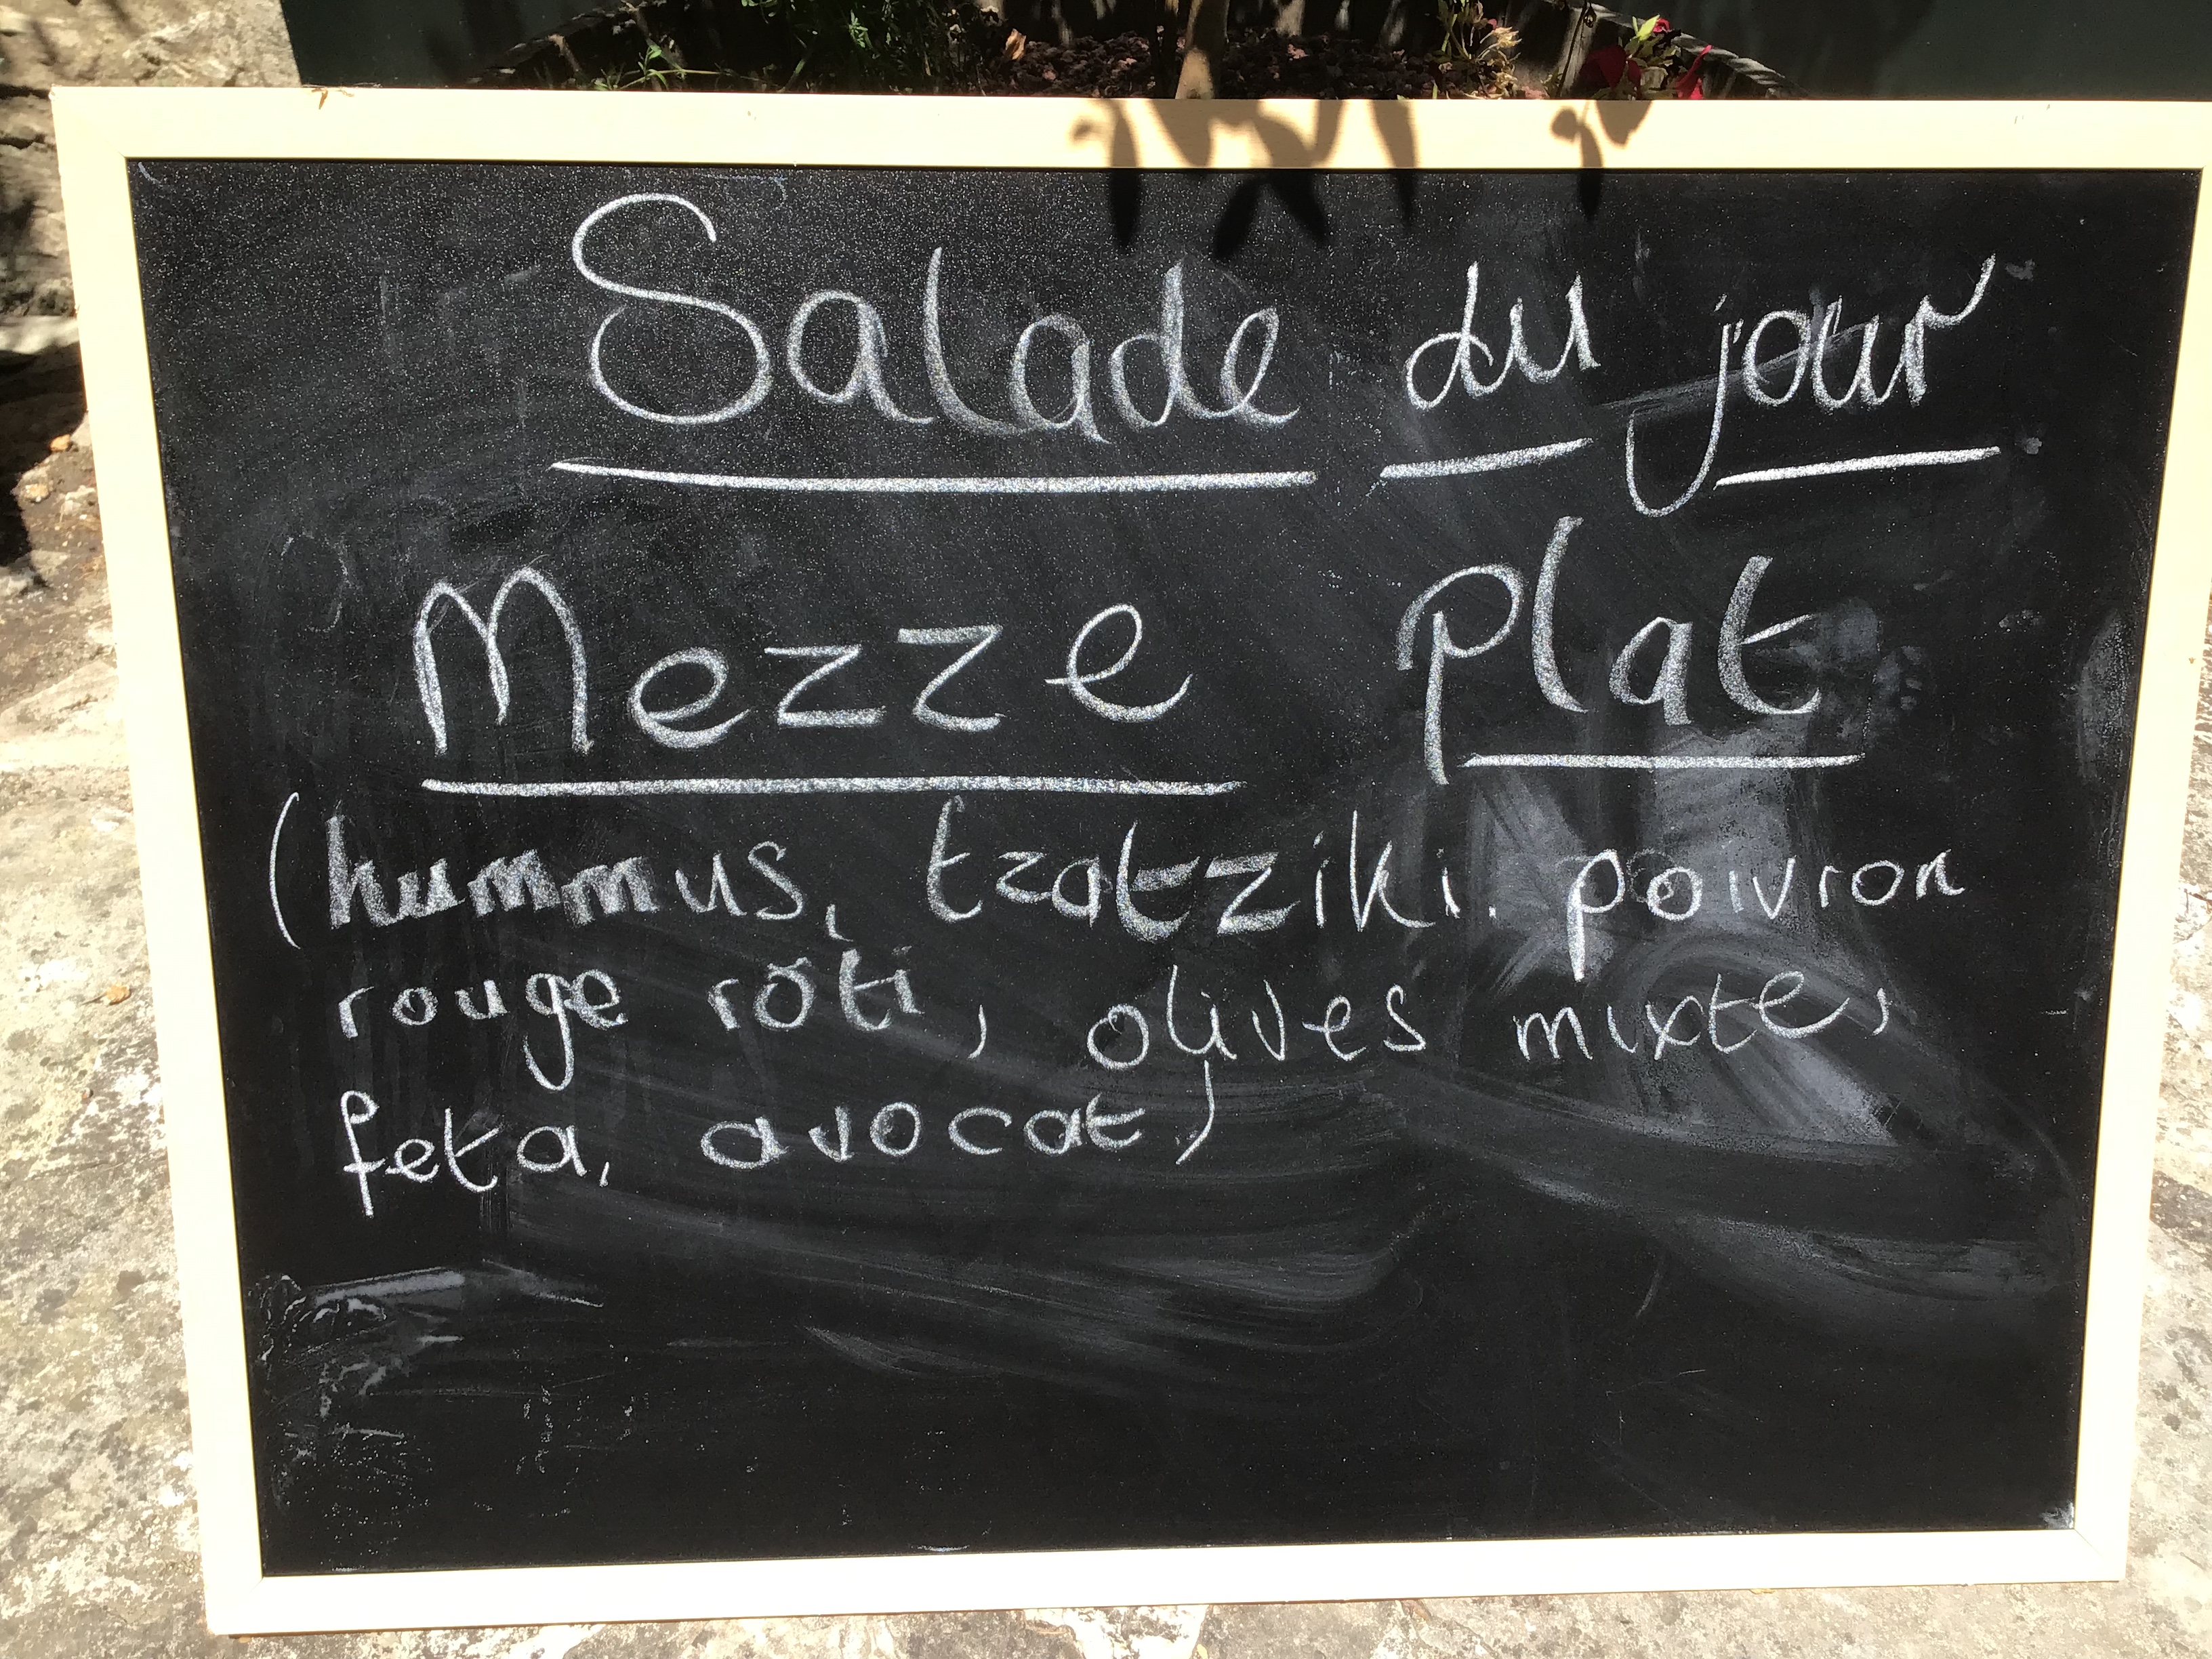 Salade du jour
Mezze Plat
(hummus, tzatziki. poivron
rouge rôti, olives mixte,
feta, avocat)